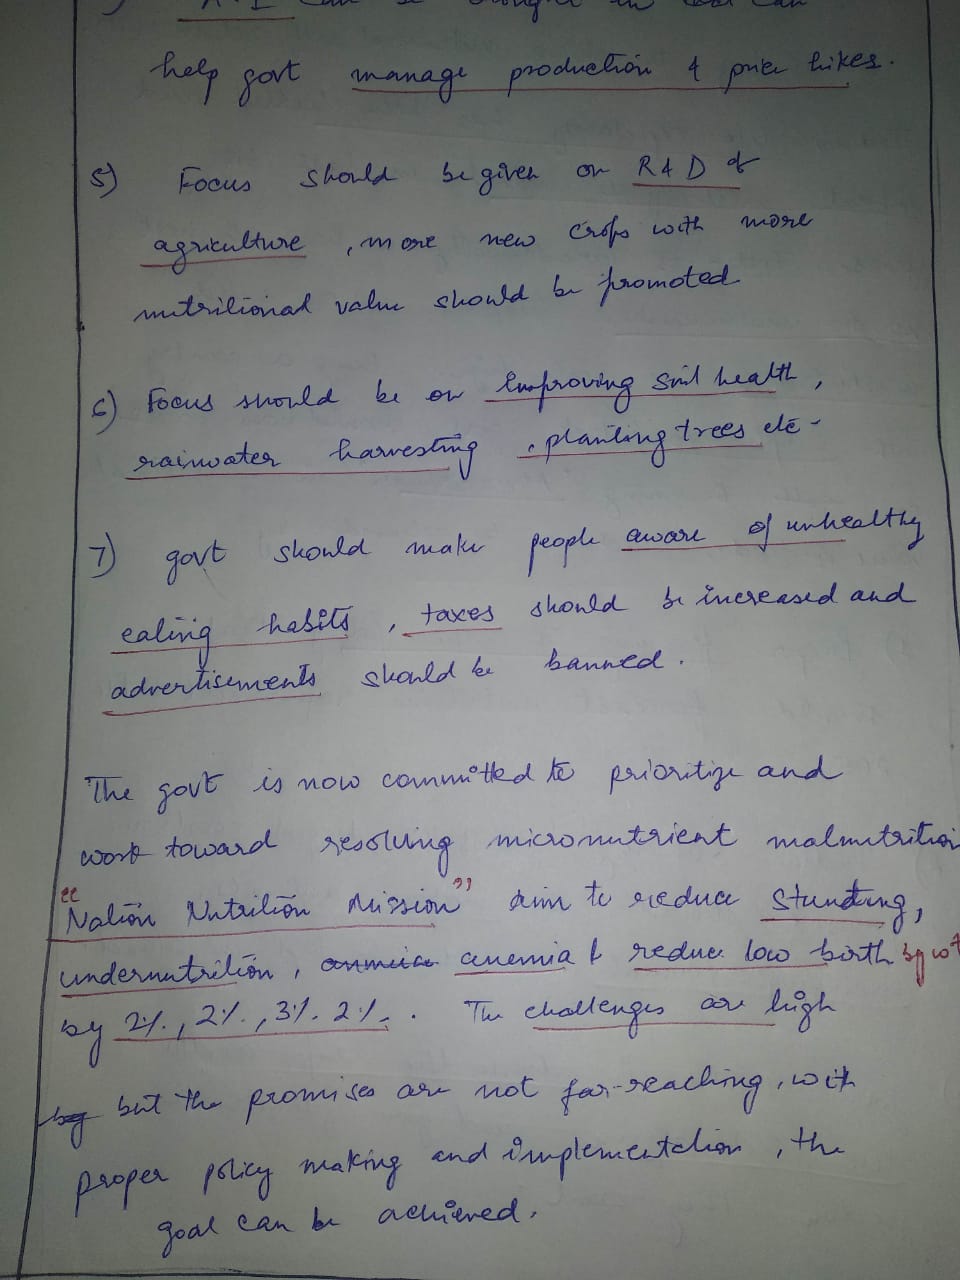 A.I can be brought in tool can
help govt manage production & price hikes.
5) Focus should be given on R & D of
agriculture, more new crops with more
nutritional value should be promoted
6) Focus should be on Improving soil health,
rainwater harvesting, planting trees etc.
7) govt should make people aware of unhealthy
eating habits, taxes should be increased and
advertisements should be banned.
The govt is now committed to prioritize and
work toward resolving micronutrient malnutrition
"Nation Nutrition Mission" aim to reduce Stunting,
undernutrition, anemia & reduce low birth
by 2%, 2%, 3%. 2%. The challenges are high
but the promises are not far-reaching, with
proper policy making and implementation, the
goal can be achieved.